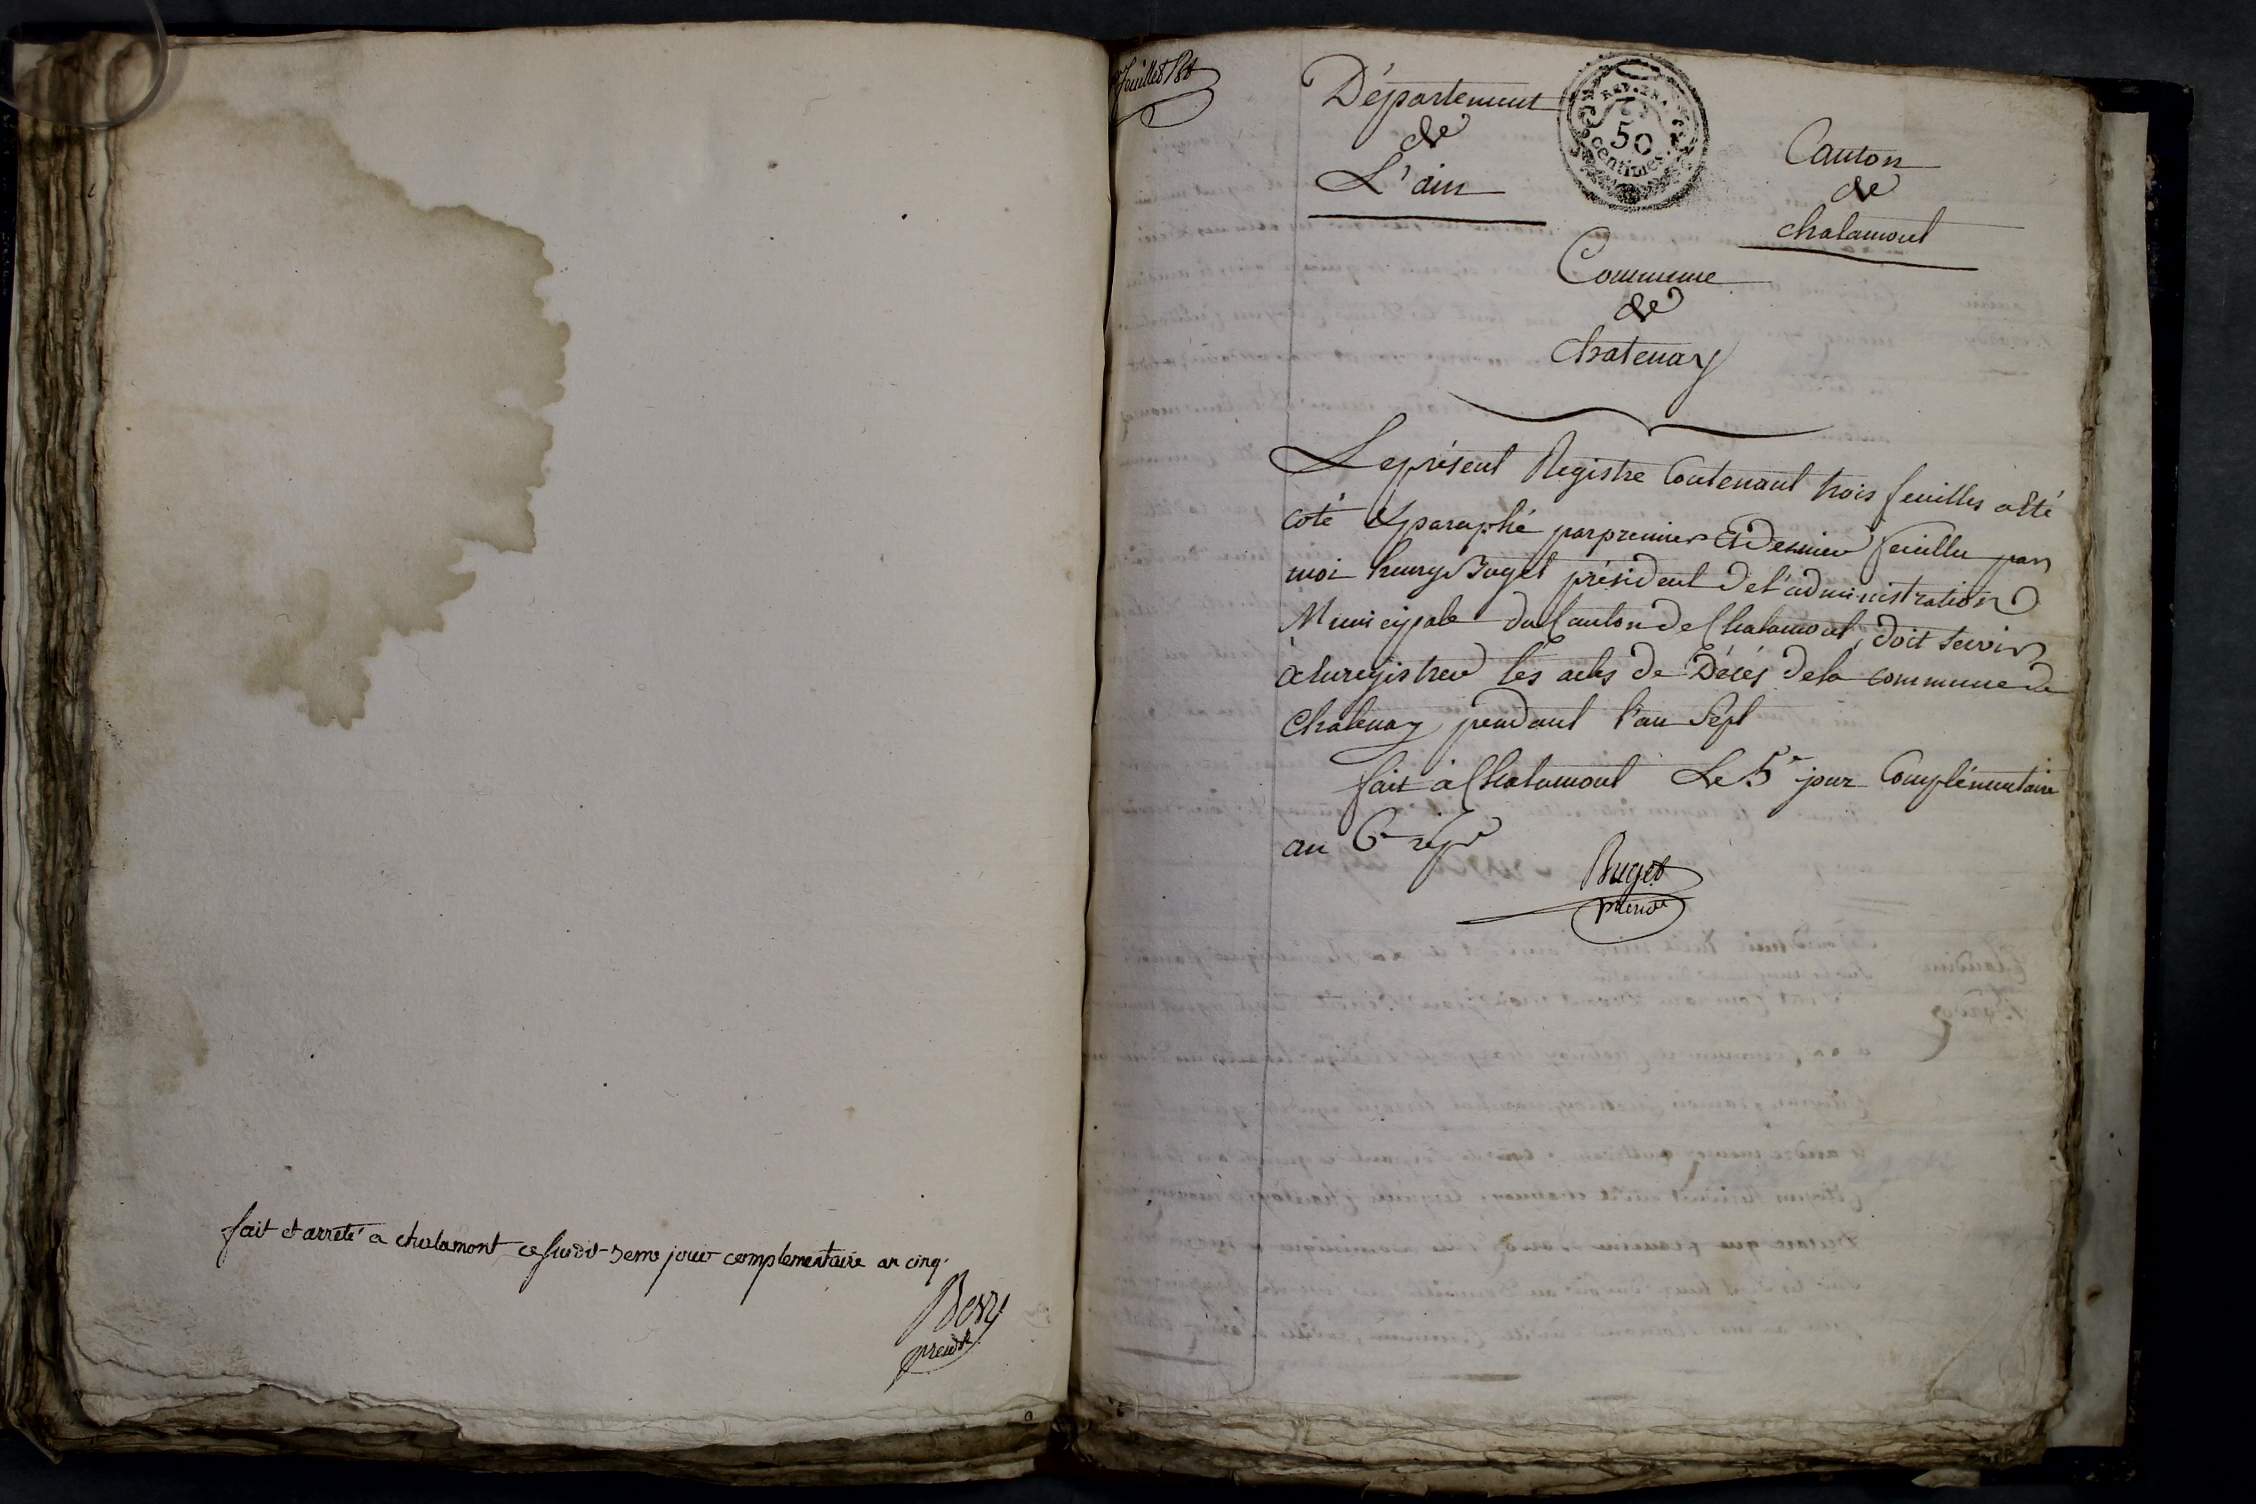 fait et arreté a chalamont ce susdit 5eme jour complementaire an cinq.
presdt
feuillet
Département
de
L'ain
REP. FRA
50
centimes
Canton
de
chalamont
Commune
de
chatenay
Le présent Registre Contenant trois feuilles a Eté
coté & paraphé par premier Et Dernier feuillet par
moi henry Buget président De l'administration
Municipale du Canton De Chalamont, doit servir
à Enregistrer les actes de Décés de la commune de
Chatenay pendant l'an Sept
fait à Chalamont Le 5e jour Complémentaire
an 6e rep
Buget
présidt